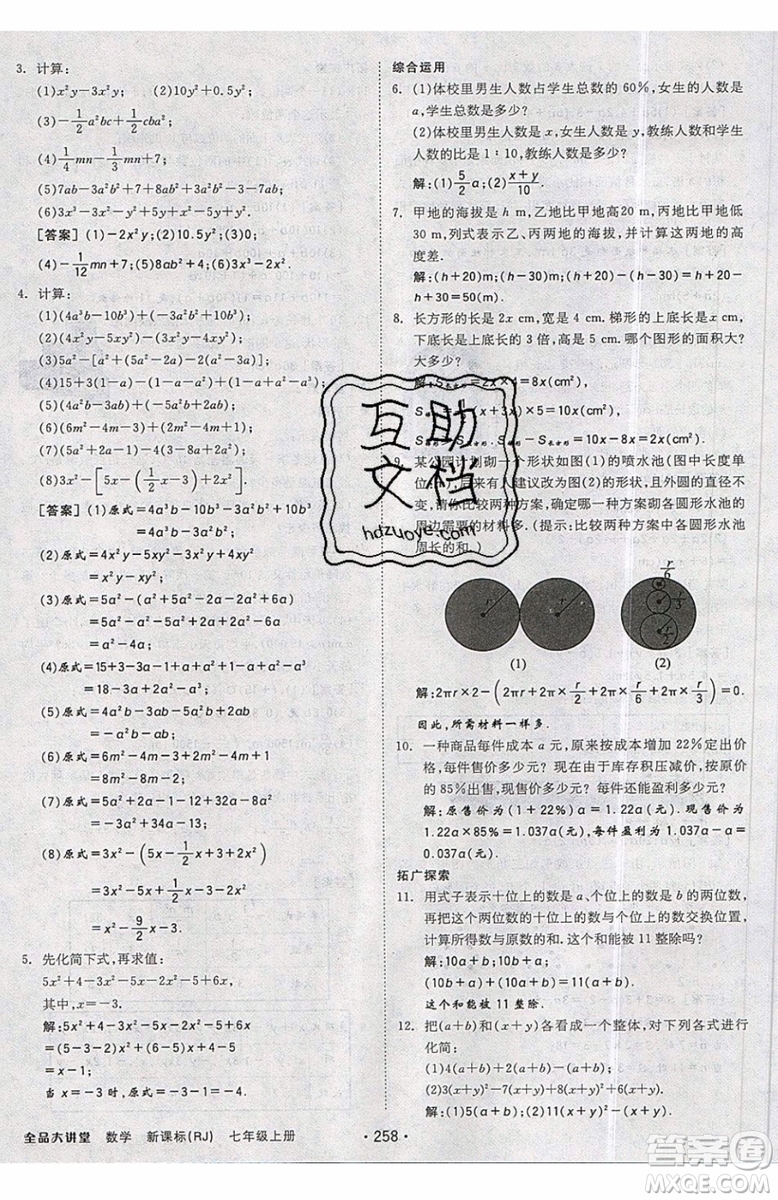 3. 计算：
(1)x²y－3x²y；(2)10y²＋0.5y²；
(3)－1/2a²bc＋1/2cba²；
(4)1/4mn－1/3mn＋7；
(5)7ab－3a²b²＋7＋8ab²＋3a²b²－3－7ab；
(6)3x³－3x²－y²＋5y＋x²－5y＋y².
[答案] (1)－2x²y (2)10.5y² (3)0；
(4)－1/12mn＋7 (5)8ab²＋4 (6)3x³－2x².
4. 计算：
(1)(4a³b－10b³)＋(－3a²b²＋10b³)；
(2)(4x²y－5xy²)－(3x²y－4xy²)；
(3)5a²－[a²＋(5a²－2a)－2(a²－3a)]；
(4)15＋3(1－a)－(1－a－a²)＋(1－a＋a²－a³)；
(5)(4a²b－3ab)＋(－5a²b＋2ab)；
(6)(6m²－4m－3)＋(2m²－4m＋1)；
(7)(5a²＋2a－1)－4(3－8a＋2a²)；
(8)3x²－[5x－(1/2x－3)＋2x²].
[答案] (1)原式＝4a³b－10b³－3a²b²＋10b³
＝4a³b－3a²b²；
(2)原式＝4x²y－5xy²－3x²y＋4xy²
＝x²y－xy²；
(3)原式＝5a²－(a²＋5a²－2a－2a²＋6a)
＝5a²－a²－5a²＋2a＋2a²－6a
＝a²－4a；
(4)原式＝15＋3－3a－1＋a＋a²＋1－a＋a²－a³
＝18－3a＋2a²－a³；
(5)原式＝4a²b－3ab－5a²b＋2ab
＝－a²b－ab；
(6)原式＝6m²－4m－3＋2m²－4m＋1
＝8m²－8m－2；
(7)原式＝5a²＋2a－1－12＋32a－8a²
＝－3a²＋34a－13；
(8)原式＝3x²－(5x－1/2x＋3＋2x²)
＝3x²－5x＋1/2x－3－2x²
＝x²－9/2x－3.
5. 先化简下式，再求值：
5x²＋4－3x²－5x－2x²－5＋6x，
其中，x＝－3.
解：5x²＋4－3x²－5x－2x²－5＋6x
＝(5－3－2)x²＋(－5＋6)x＋(4－5)
＝x－1.
当x＝－3时，原式＝－3－1＝－4.
综合运用
6. (1)体校里男生人数占学生总数的60%，女生的人数是
a，学生总数是多少？
(2)体校里男生人数是x，女生人数是y，教练人数和学生
人数的比是1∶10，教练人数是多少？
解：(1)5/2a；(2)(x＋y)/10.
7. 甲地的海拔是h m，乙地比甲地高20 m，丙地比甲地低
30 m，列式表示乙、丙两地的海拔，并计算这两地的高
度差.
解：(h＋20)m；(h－30)m；(h＋20)－(h－30)＝h
＋20－h＋30＝50(m).
8. 长方形的长是2x cm，宽是4 cm，梯形的上底长是x cm，
下底长是上底长的3倍，高是5 cm，哪个图形的面积大？
大多少？
＝2x×4＝8x(cm²)，
＝10x－8x＝2x(cm²).
9. 某公园计划砌一个形状如图(1)的喷水池(图中长度单
位：m)，后来有人建议改为图(2)的形状，且外圆的直径不
变，请你比较两种方案，确定哪一种方案砌各圆形水池的
周边需要的材料多.(提示：比较两种方案中各圆形水池
周长的和.)
r r r/6 r/3 r/2
(1) (2)
解：2πr×2－(2πr＋2π×r/2＋2π×r/6＋2π×r/3)＝0.
因此，所需材料一样多.
10. 一种商品每件成本a元，原来按成本增加22%定出价
格，每件售价多少元？现在由于库存积压减价，按原价
的85%出售，现售价多少元？每件还能盈利多少元？
解：原售价为(1＋22%)a＝1.22a(元)，现售价为
1.22a×85%＝1.037a(元)，每件盈利为1.037a－a＝
0.037a(元).
拓广探索
11. 用式子表示十位上的数是a、个位上的数是b的两位数，
再把这个两位数的十位上的数与个位上的数交换位置，
计算所得数与原数的和.这个和能被11整除吗？
解：10a＋b；10b＋a；
(10a＋b)＋(10b＋a)＝11(a＋b)，
这个和能被11整除.
12. 把(a＋b)和(x＋y)各看成一个整体，对下列各式进行
化简：
(1)4(a＋b)＋2(a＋b)－(a＋b)；
(2)3(x＋y)²－7(x＋y)＋8(x＋y)²＋6(x＋y).
全品大讲堂 数学 新课标(RJ) 七年级上册 ·258·
互助
文档
hdzuoye.com
作业精灵